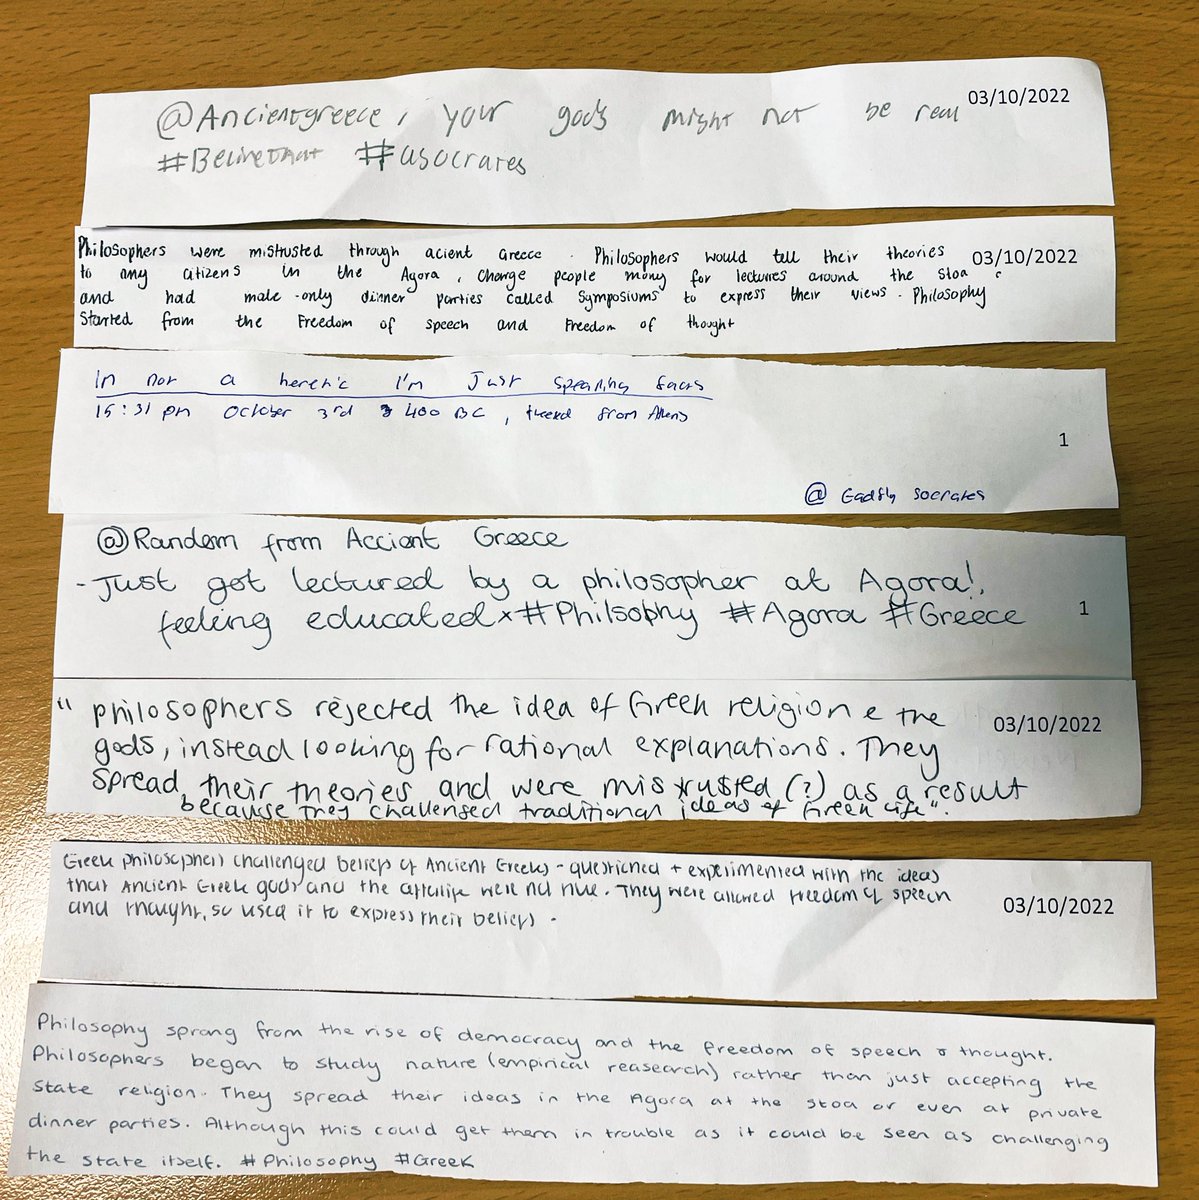 @Ancientgreece, your gods might not be real 03/10/2022
#BelieveThat #usocrates
Philosophers were mistrusted through acient Greece. Philosophers would tell their theories 03/10/2022
to any citizens in the Agora, Charge people money for lectures around the Stoa,
and had male-only dinner parties called Symposiums to express their views. Philosophy
Started from the Freedom of speech and Freedom of thought
Im not a heretic I'm Just speaking facts
15:31 pm October 3rd 400 BC, tweeted from Athens
1
@ Gadfly Socrates
@Random from Accient Greece
-Just got lectured by a philosopher at Agora!,
feeling educatedx #Philsophy #Agora #Greece 1
"philosophers rejected the idea of Greek religion & the
gods, instead looking for rational explanations. They 03/10/2022
spread their theories and were mistrusted (?) as a result
because they challenged traditional ideas of Greek life".
Greek philosophers challenged beliefs of Ancient Greeks - questioned + experimented with the ideas
that Ancient Greek gods and the afterlife were not true. They were allowed freedom of speech
and thought, so used it to express their beliefs - 03/10/2022
Philosophy sprang from the rise of democracy and the freedom of speech & thought.
Philosophers began to study nature (empirical reasearch) rather than just accepting the
state religion. They spread their ideas in the Agora at the stoa or even at private
dinner parties. Although this could get them in trouble as it could be seen as challenging
the state itself. #Philosophy #Greek